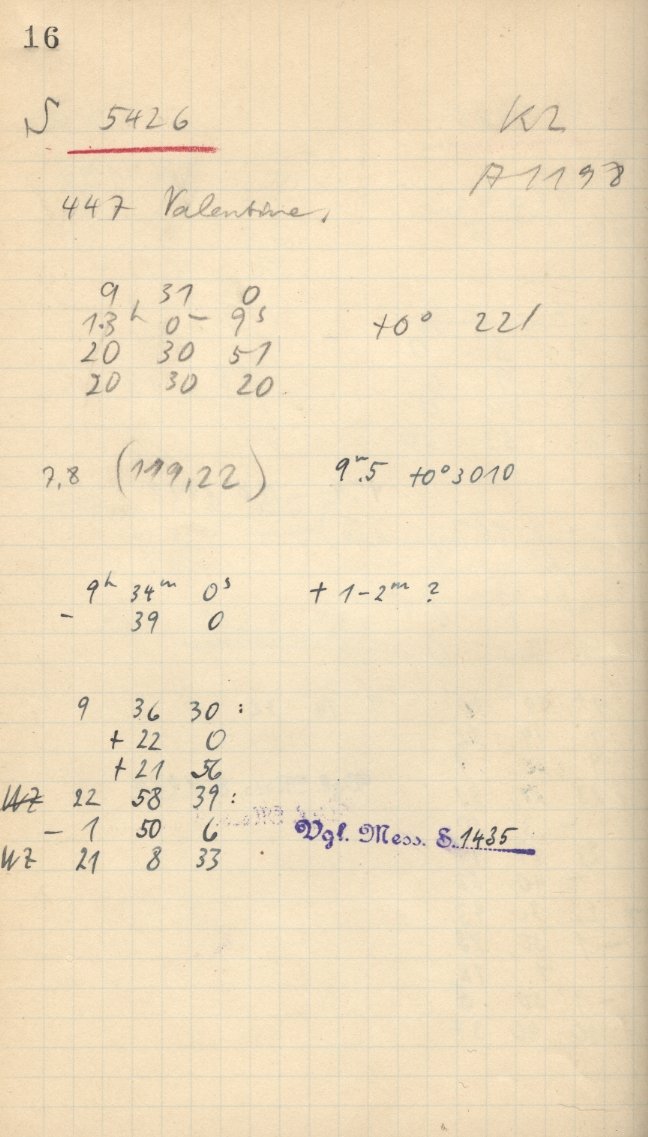 16
S 5426
K2
A 1198
447 Valentine.
9 31 0
13h 0m 9s +0° 221
20 30 51
20 30 20
7,8 (119,22) 9m.5 +0°3010
9h 34m 0s + 1-2m ?
- 39 0
9 36 30 :
+ 22 0
+ 21 56
WZ 22 58 39 :
- 1 50 6 Vgl. Mess. S. 1435
WZ 21 8 33